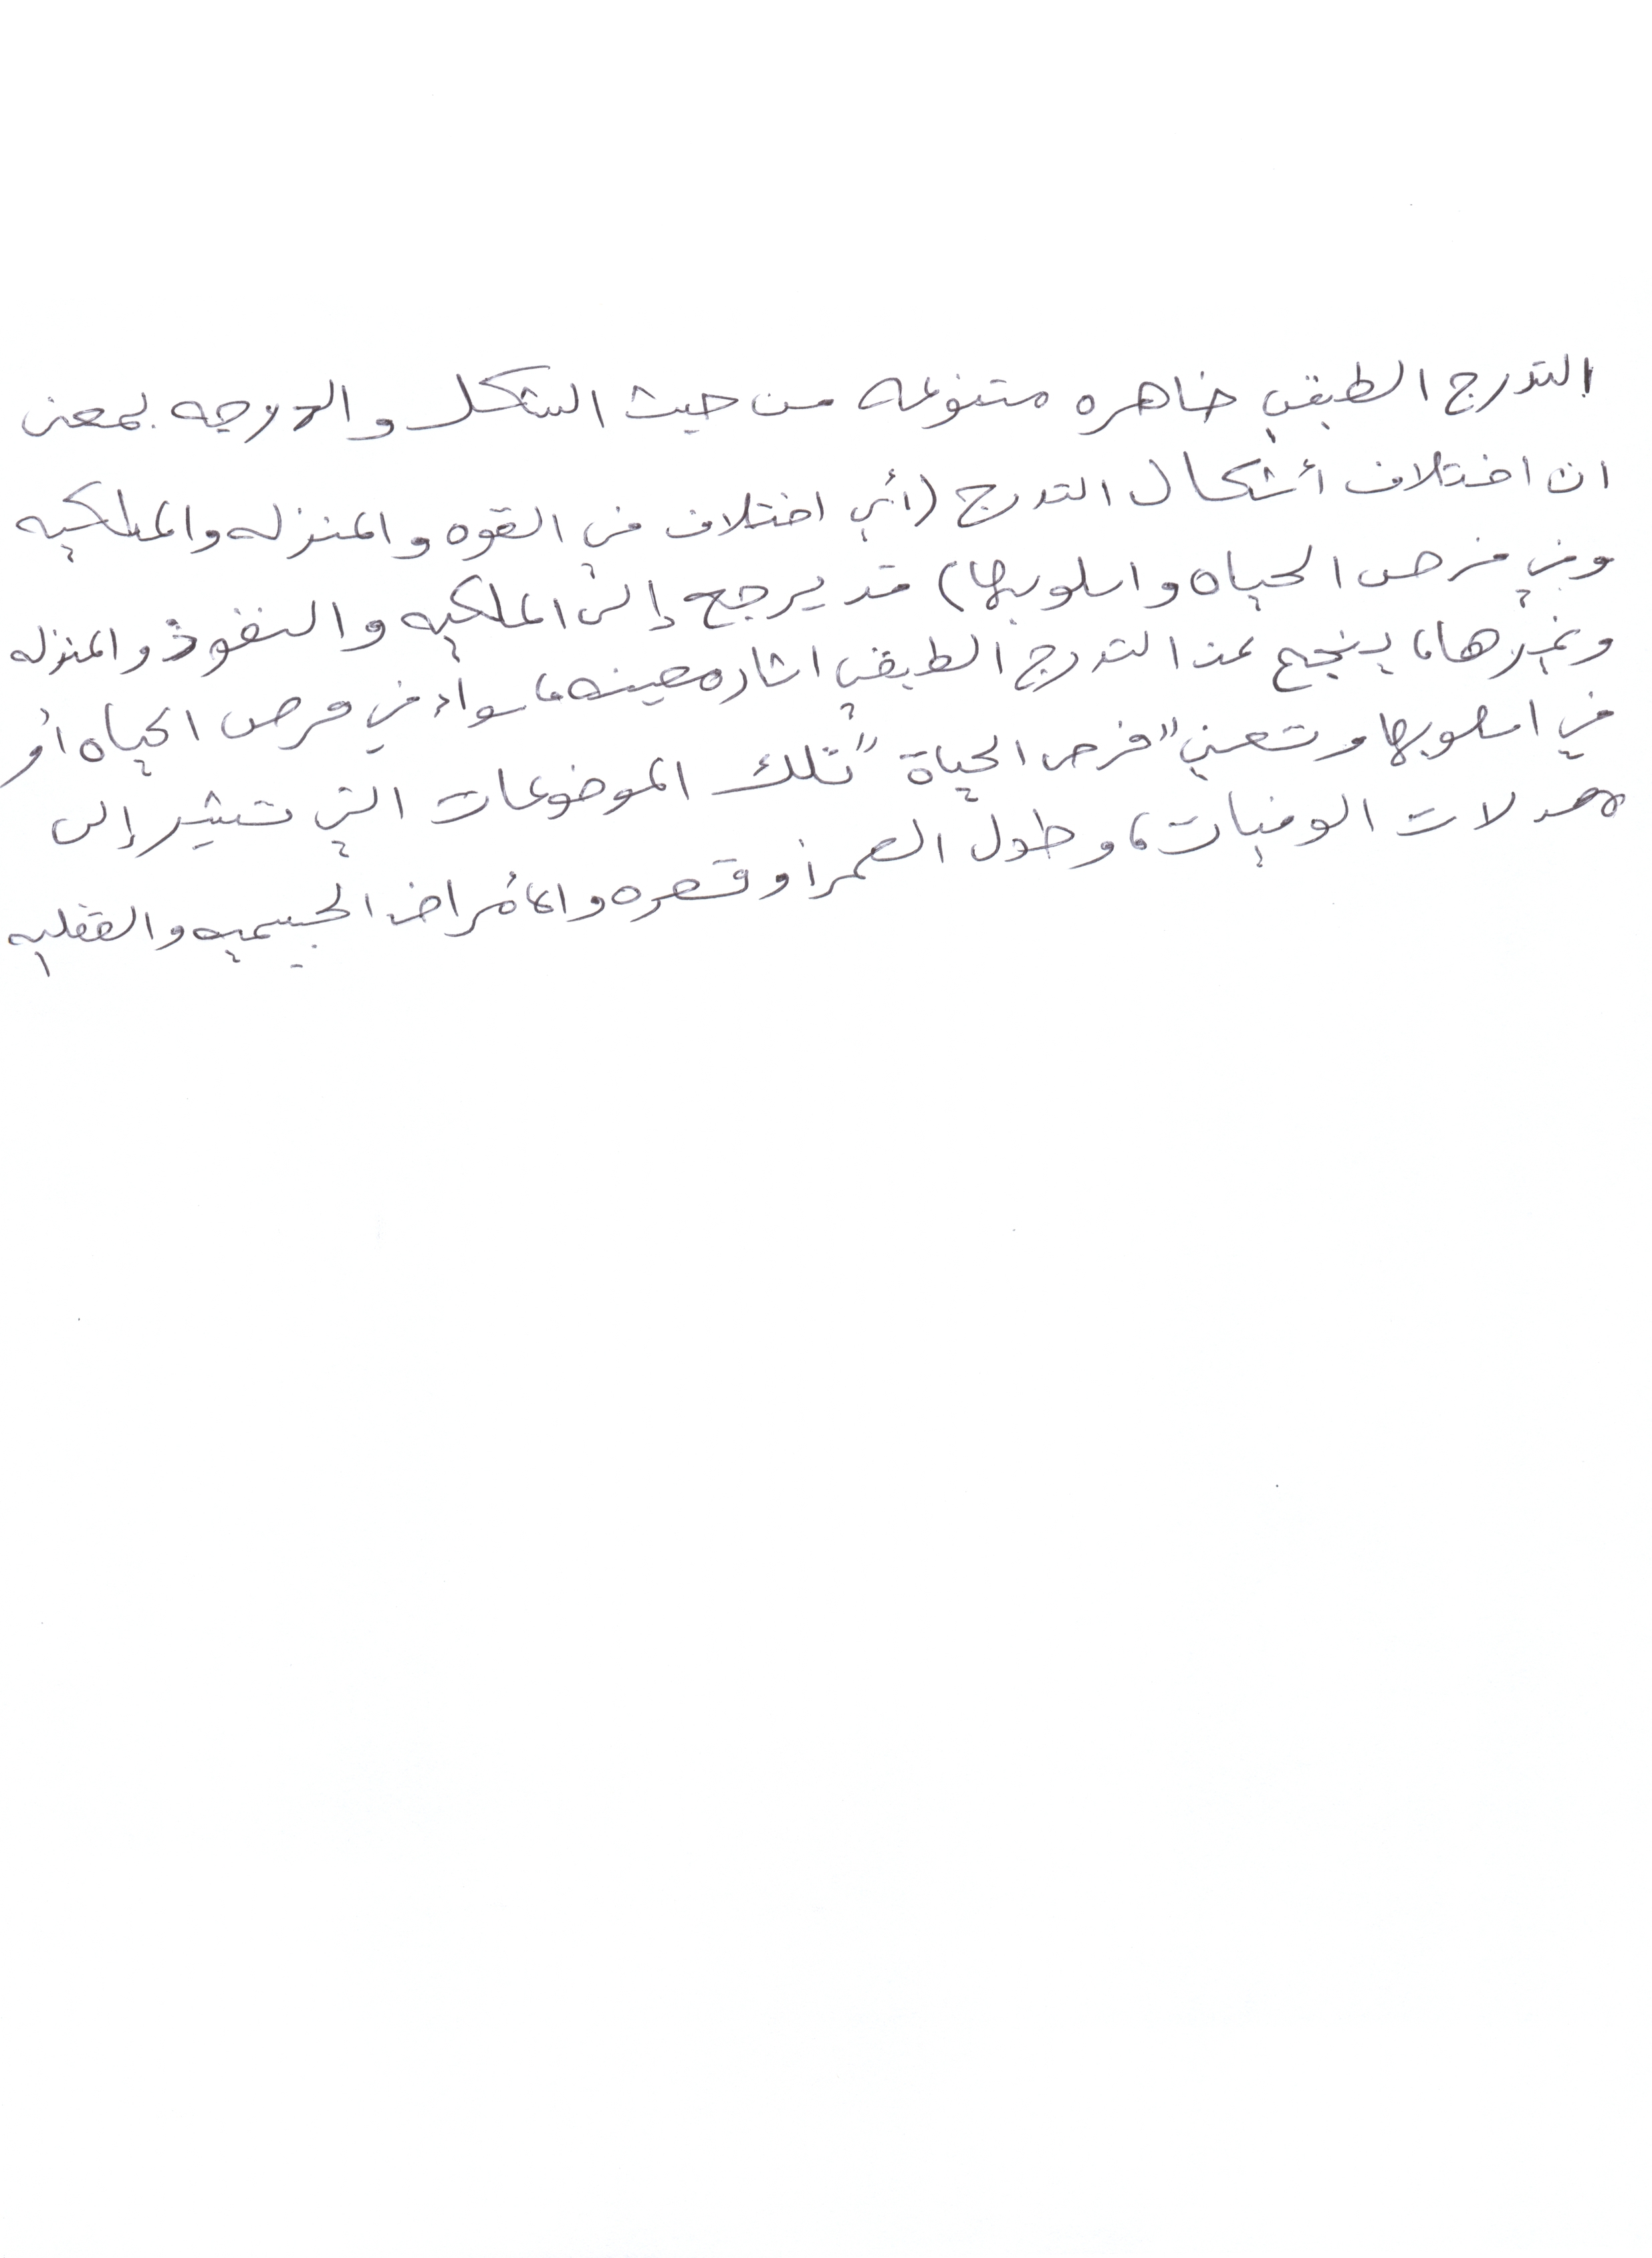 التدرج الطبقي ضاهره متنوعه من حيث الشكل والدرجه بمعنى
ان اختلاف أشكال التدرج (أي اختلاف في القوه والمنزله والملكيه
وفي فرص الحياه واسلوبها) قد يرجح إلى الملكيه والنفوذ والمنزله
وغيرها، ينجح عن التدرج الطبقي اثاره معينه، سواء في فرص الحياه أو
في اسلوبها وتعني "فرص الحياة" تلك الموضوعات التي تشير إلى
معدلات الوفيات، وطول العمر أو قصره والأمراض الجسميه والعقليه